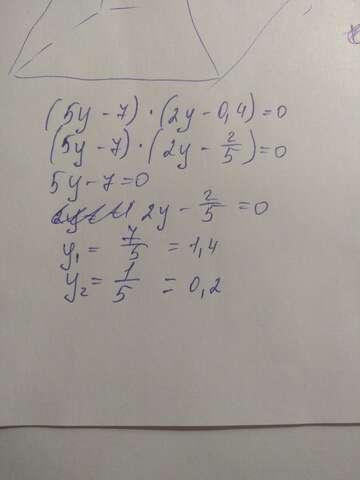 (5y - 7) · (2y - 0,4) = 0
(5y - 7) · (2y - 2/5) = 0
5y - 7 = 0
2y - 2/5 = 0
y₁ = 7/5 = 1,4
y₂ = 1/5 = 0,2